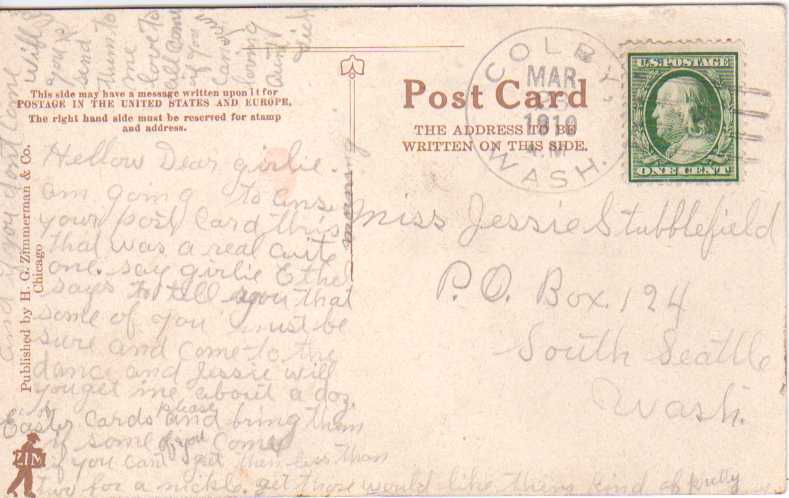 This side may have a message written upon it for
POSTAGE IN THE UNITED STATES AND EUROPE,
The right hand side must be reserved for stamp
and address.
Post Card
THE ADDRESS TO BE
WRITTEN ON THIS SIDE.
COLBY,
MAR
1910
WASH.
U.S. POSTAGE
ONE CENT
Published by H. G. Zimmerman & Co.
Chicago
ZIM
Miss Jessie Stubblefield
P.O. Box 124
South Seattle
Wash.
Hellow Dear girlie.
am going to ans
your post Card this
morning
that was a real cute
one. say girlie Ethel
says to tell you that
some of you must be
sure and come to the
dance and Jessie will
you get me about a doz.
Easter cards and bring them
please
if some of you come
if you can't get them less than
two for a nickle. get those would like them kind of pretty
and if you don't come
will
you
send
them to
me
love to
all come
if you
can
loving
aunt